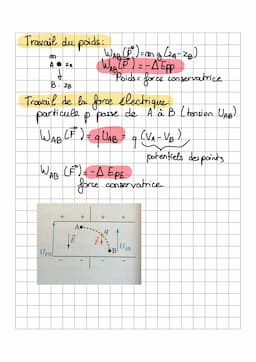 Travail du poids:
m
A • zA
W_AB(P⃗) = m g (zA - zB)
W_AB(P⃗) = - Δ Epp
B - zB
Poids = force conservatrice
Travail de la force électrique
particule p passe de A à B (tension U_AB)
W_AB(F⃗) = q U_AB = q (V_A - V_B)
potentiels des points
W_AB(F⃗) = - Δ E_PE
force conservatrice
+ + + +
A
q
E⃗
F⃗
U_AB
B
- - - -